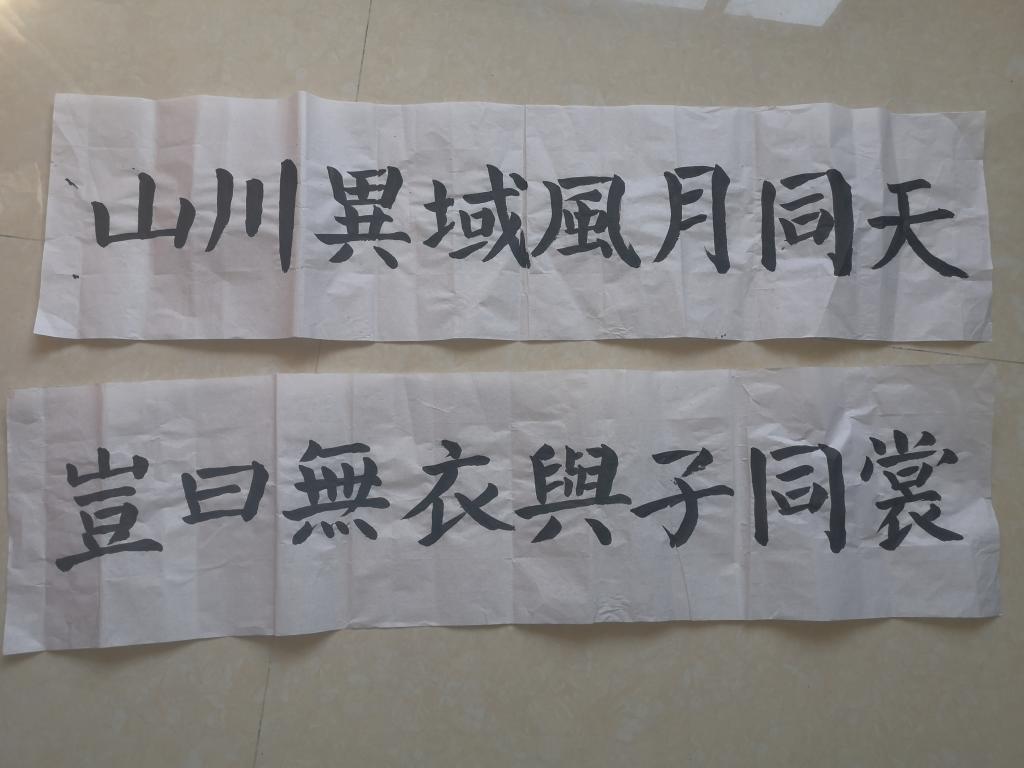 山川異域風月同天
豈曰無衣與子同裳